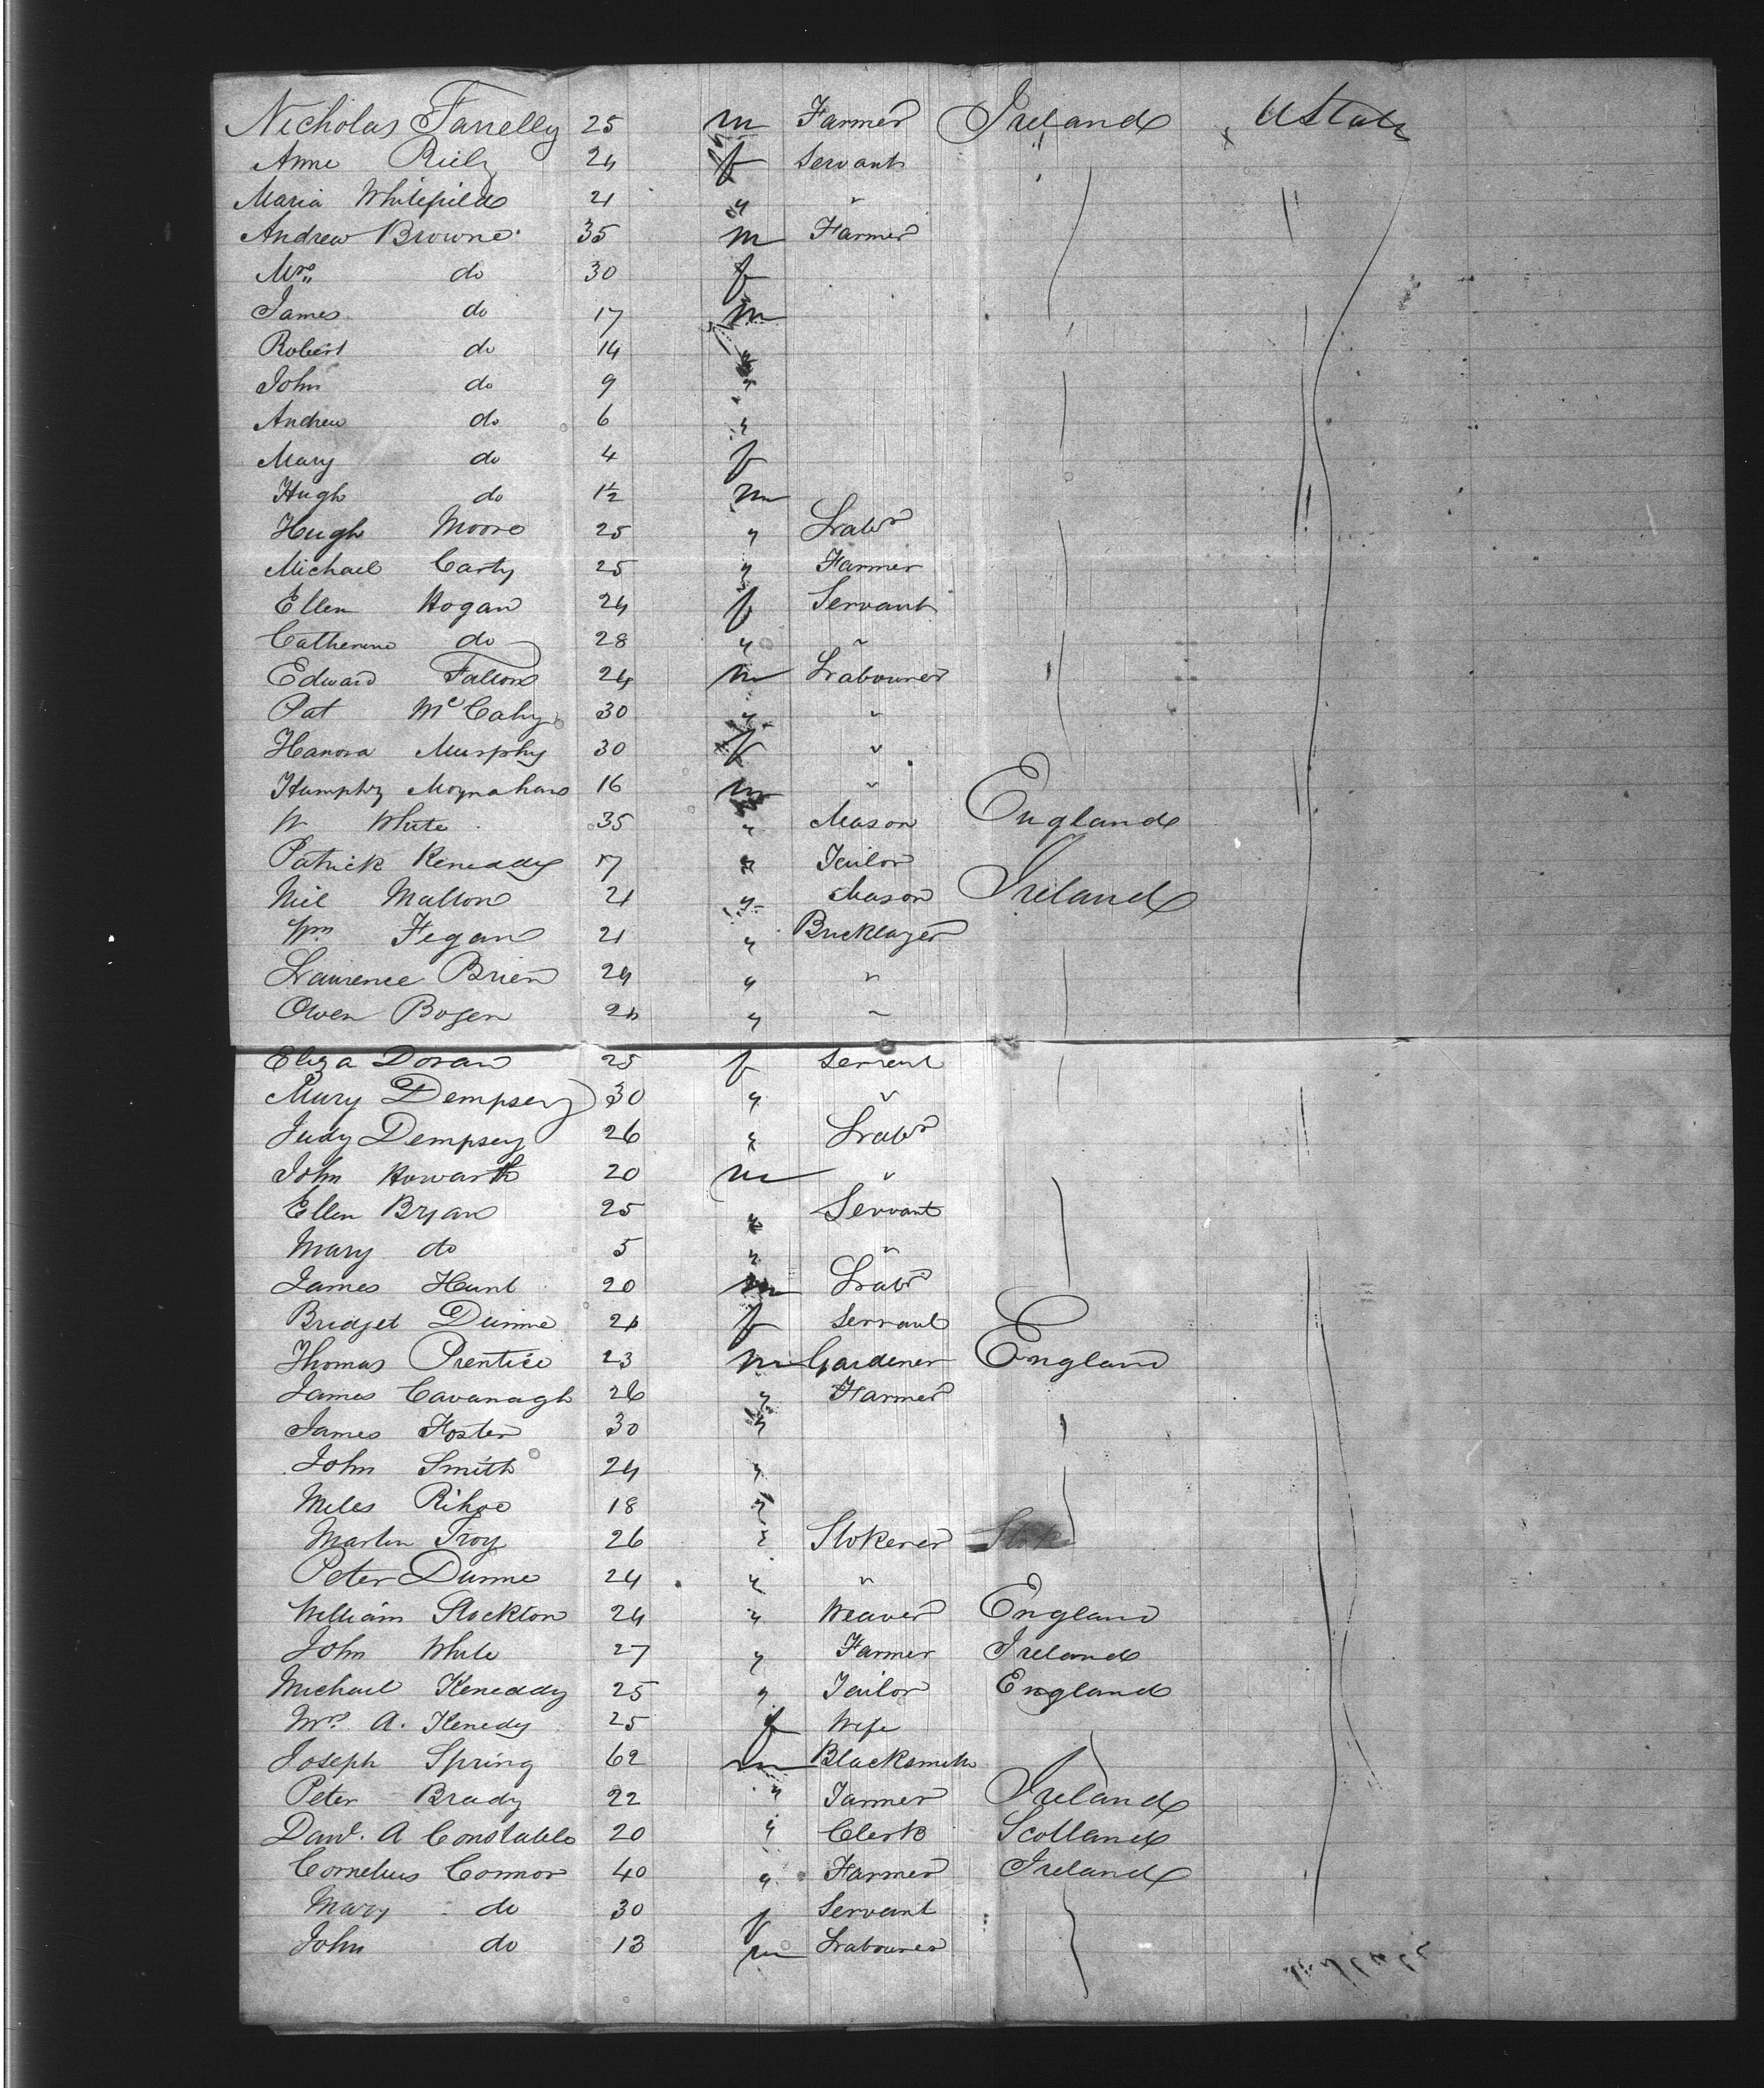 Nicholas Farrelly 25 m Farmer Ireland U States
Anne Riely 24 f Servant
Maria Whitefield 21 " "
Andrew Browne 35 m Farmer
Mrs do 30 f
James do 17 m
Robert do 14 "
John do 9 "
Andrew do 6 "
Mary do 4 f
Hugh do 1½ m
Hugh Moore 25 " Labr
Michael Carty 25 " Farmer
Ellen Hogan 24 f Servant
Catherine do 28 " "
Edward Fallon 24 m Labourer
Pat McCahy 30 " "
Hanora Murphy 30 f "
Humphry Moynahan 16 m "
W White 35 " Mason England
Patrick Keneddy 17 " Tailor
Neil Mallon 21 " Mason Ireland
Wm Fegan 21 " Bricklayer
Laurence Brien 24 " "
Owen Bogen " "
Eliza Doran 25 f Servant
Mary Dempsey 30 " "
Judy Dempsey 26 " Labr
John Howarth 20 m "
Ellen Bryan 25 " Servant
Mary do 5 " "
James Hunt 20 m Labr
Bridget Dunne 21 f Servant
Thomas Prentice 23 m Gardener England
James Cavanagh 26 " Farmer
James Foster 30 "
John Smith 24 "
Miles 18 "
Martin Troy 26 " Stokerer
Peter Dunne 24 " "
William Stockton 24 " Weaver England
John White 27 " Farmer Ireland
Michael Keneddy 25 " Tailor England
Mrs. A. Kenedy 25 f Wife
Joseph Spring 62 m Blacksmith
Peter Brady 22 " Farmer Ireland
Davd. A Constable 20 " Clerk Scotland
Cornelius Connor 40 " Farmer Ireland
Mary do 30 f Servant
John do 13 m Labourer